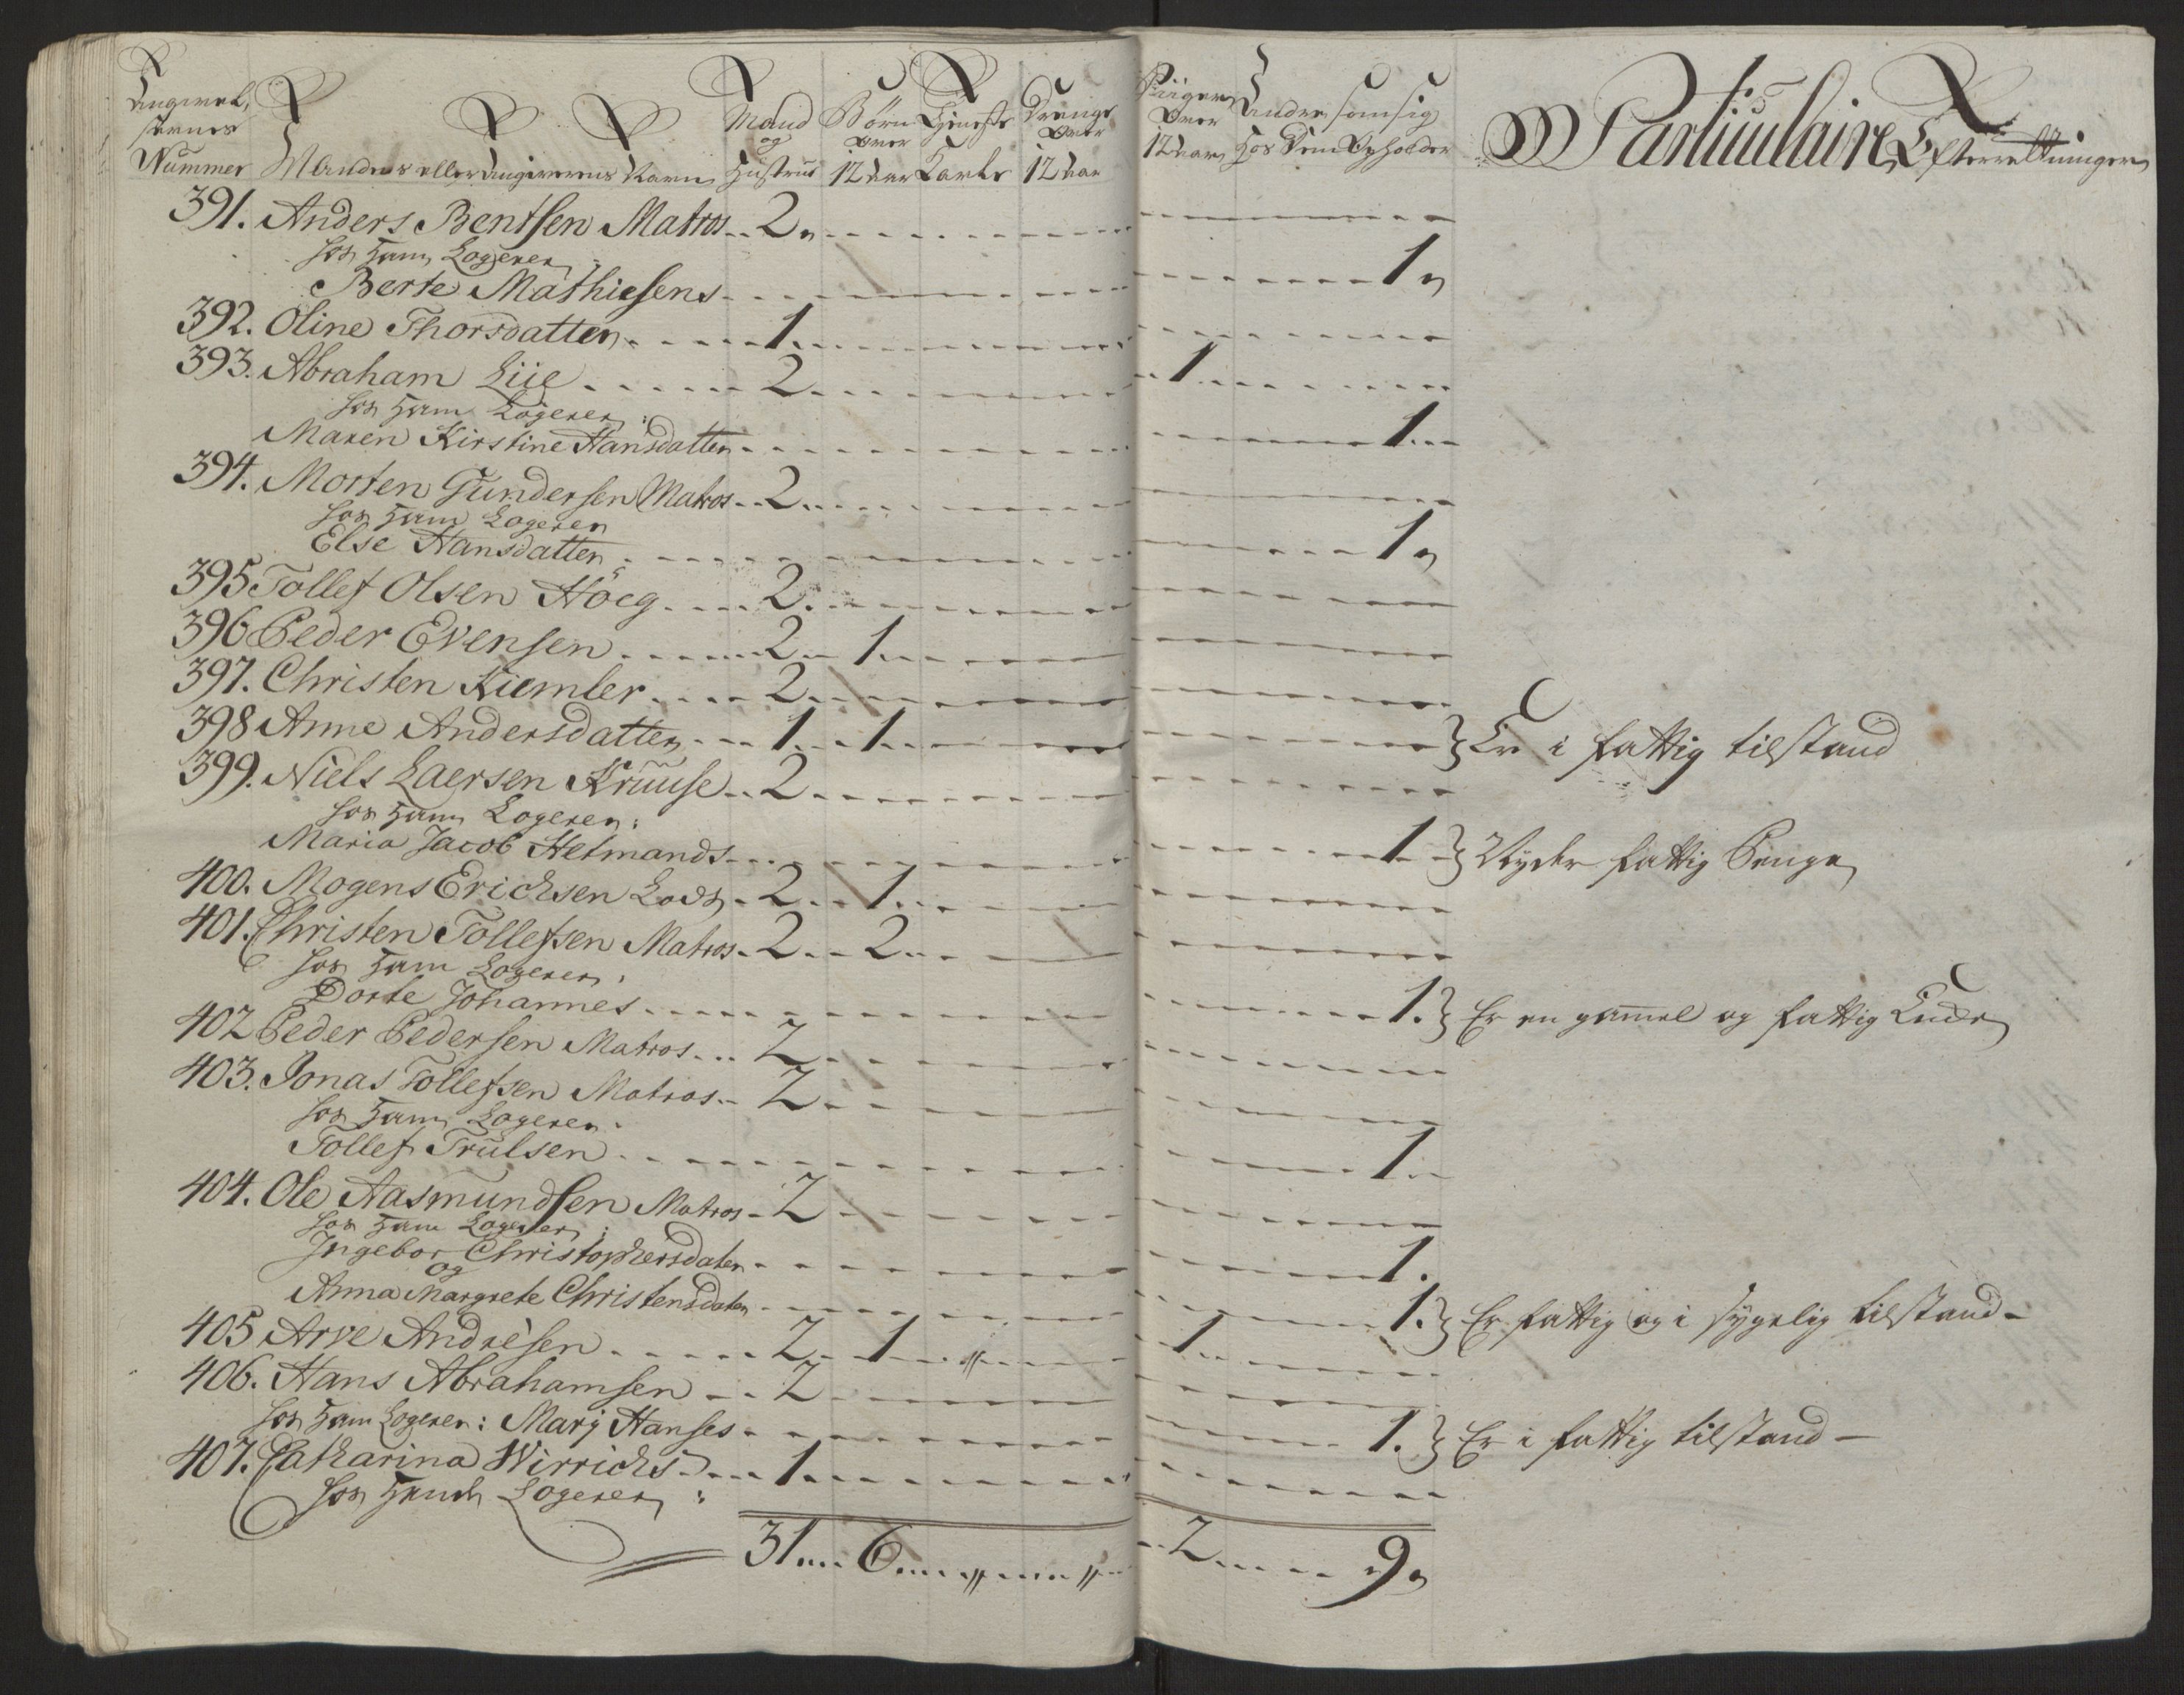 Angivel,
sernes
Nummer
Mandens eller Angiverens Navn
Mand
og
Hustrue
Børn
over
12 Aar
Tieneste
Karle
Drenge
over
12 Aar
Piiger
over
12 Aar
Andre som sig
hos dem opholder
Particulaire Efterretninger
391. Anders Bentsen Matros 2
hos ham Logerer
Berte Mathiesens 1
392. Oline Thorsdatter 1
393. Abraham Liie 2 1
hos ham Logerer:
Maren Kirstine Hansdatter 1
394. Morten Gundersen Matros 2
hos ham Logerer
Else Hansdatter 1
395 Tollef Olsen Höeg 2
396 Peder Evensen 2 1
397. Christen Kiemler 2
398 Anne Andersdatter 1 1 } Er i fattig tilstand
399. Niels Laersen Kruuse 2
hos ham Logerer:
Maria Jacob Hetmands 1 } Nyder fattig Penge
400. Mogens Erichsen Lods 2 1
401. Christen Tollefsen Matros 2 2
hos ham Logerer
Dorte Johannes 1. } Er en gamel og fattig Enke
402 Peder Pedersen Matros 2
403. Jonas Tollefsen Matros 2
hos ham Logerer
Tollef Trulsen 1
404. Ole Aasmundsen Matros 2
hos ham Logerer:
Ingebor Christophersdater 1.
og
Anna Margrete Christensdater 1. } Er fattig og i sygelig tilstand
405 Arve Andresen 2 1 " 1
406. Hans Abrahamsen 2
hos ham Logerer: Marj Hanses 1. } Er i fattig tilstand
407. Catharina Wirrichs 1
hos hende Logerer:
31 6 " " 2 9